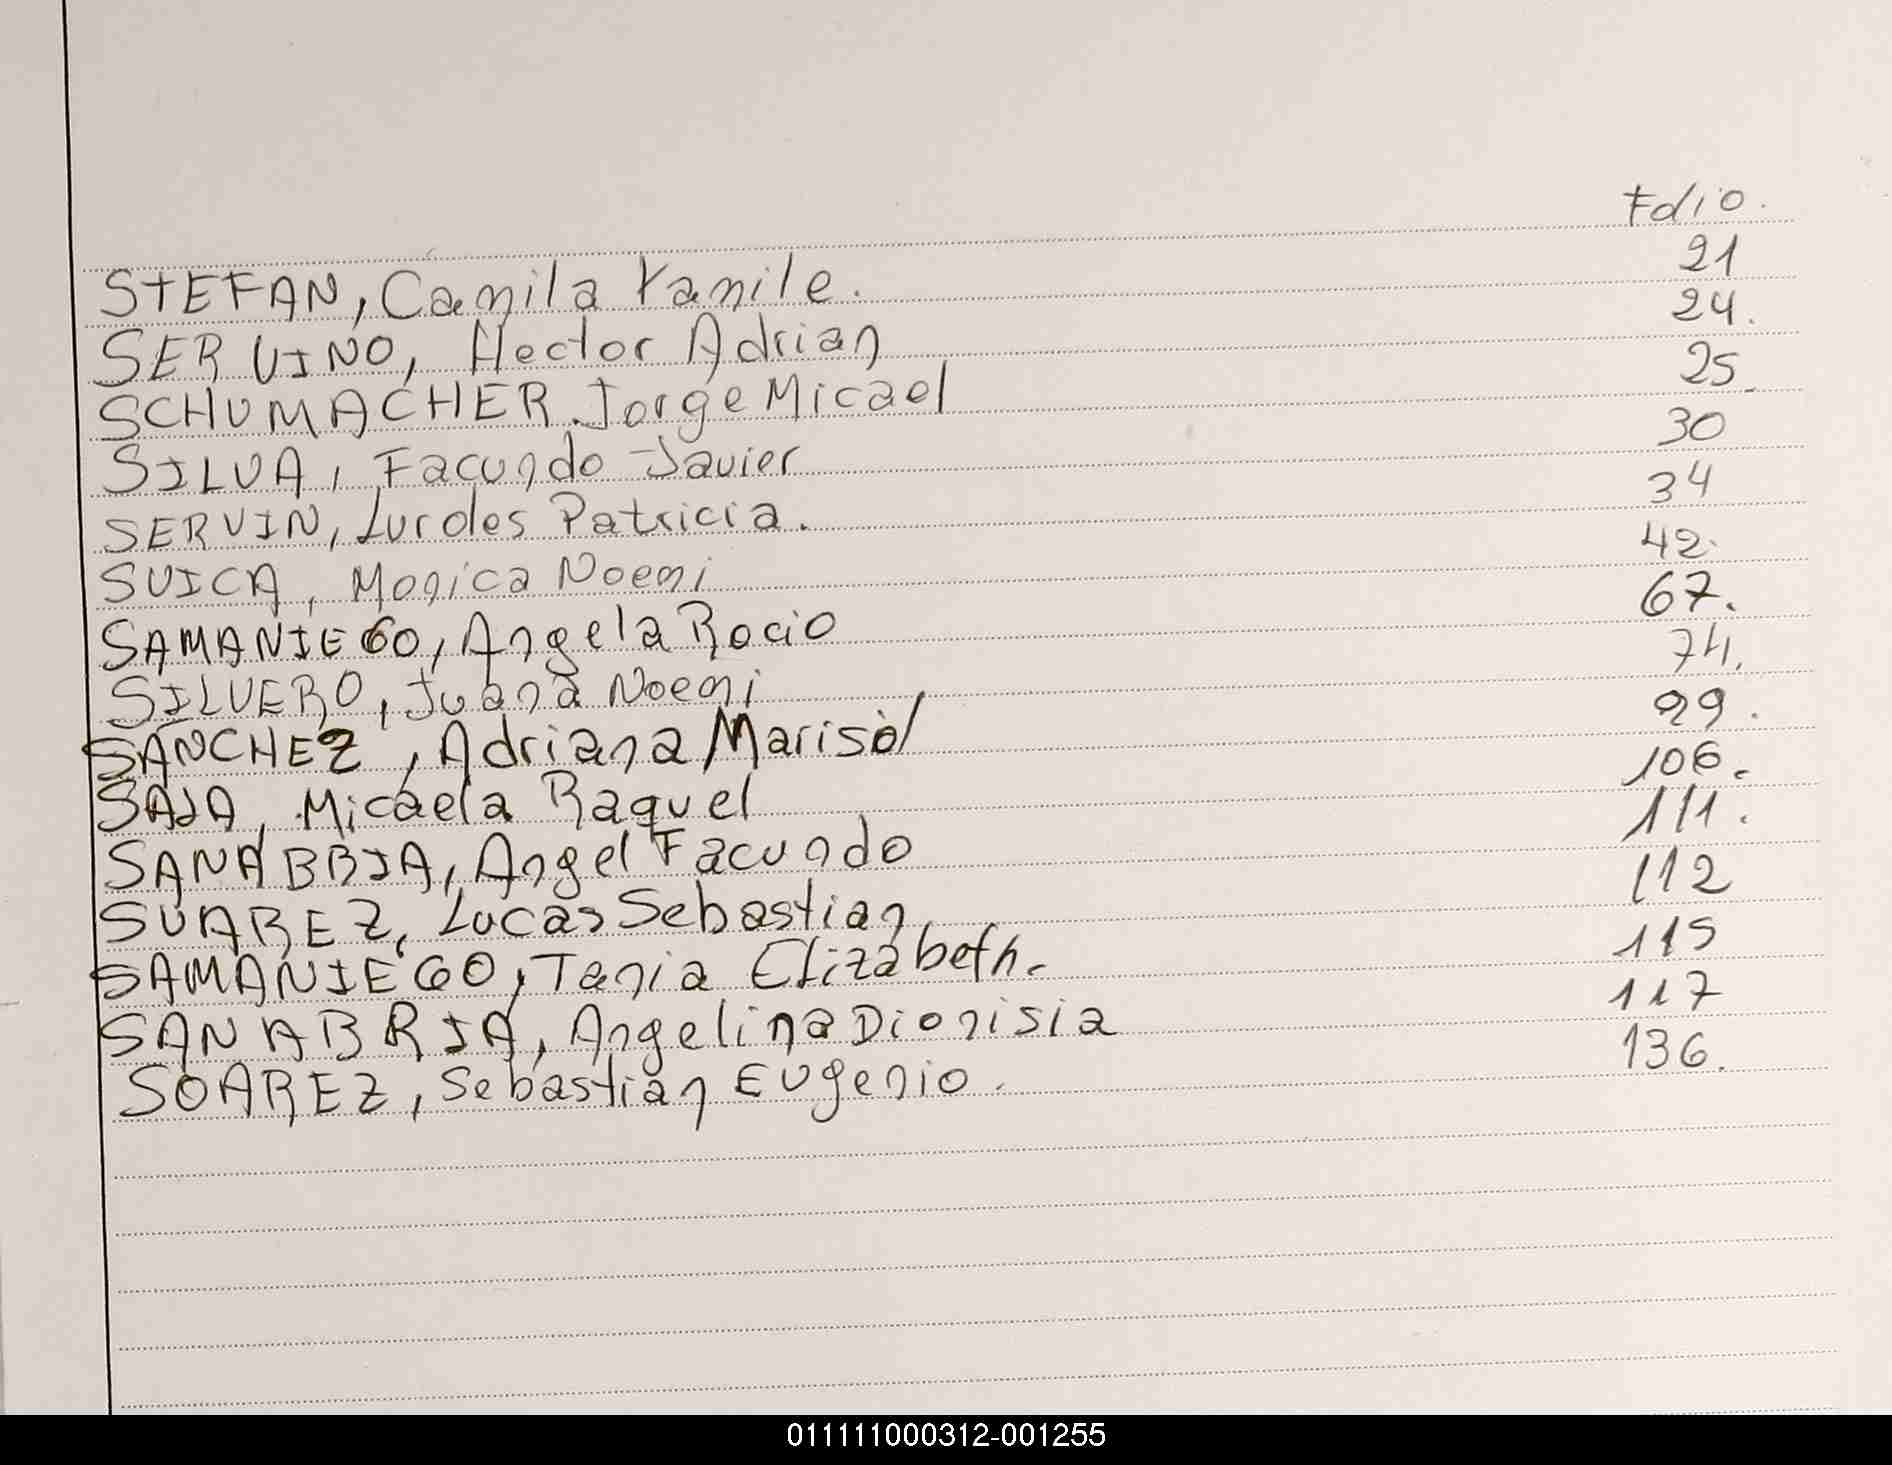 Folio.
STEFAN, Camila Yamile. 21
SERVINO, Hector Adrian 24.
SCHUMACHER Jorge Micael 25.
SILVA, Facundo Javier 30
SERVIN, Lurdes Patricia. 34
SUICA, Monica Noemi 42.
SAMANIEGO, Angela Rocio 67.
SILVERO, Juana Noemi 74.
SANCHEZ, Adriana Marisol 99.
SAJA, Micaela Raquel 106.
SANABRIA, Angel Facundo 111.
SUAREZ, Lucas Sebastian 112
SAMANIEGO, Tania Elizabeth. 115
SANABRIA, Angelina Dionisia 117
SOAREZ, Sebastian Eugenio. 136.
011111000312-001255